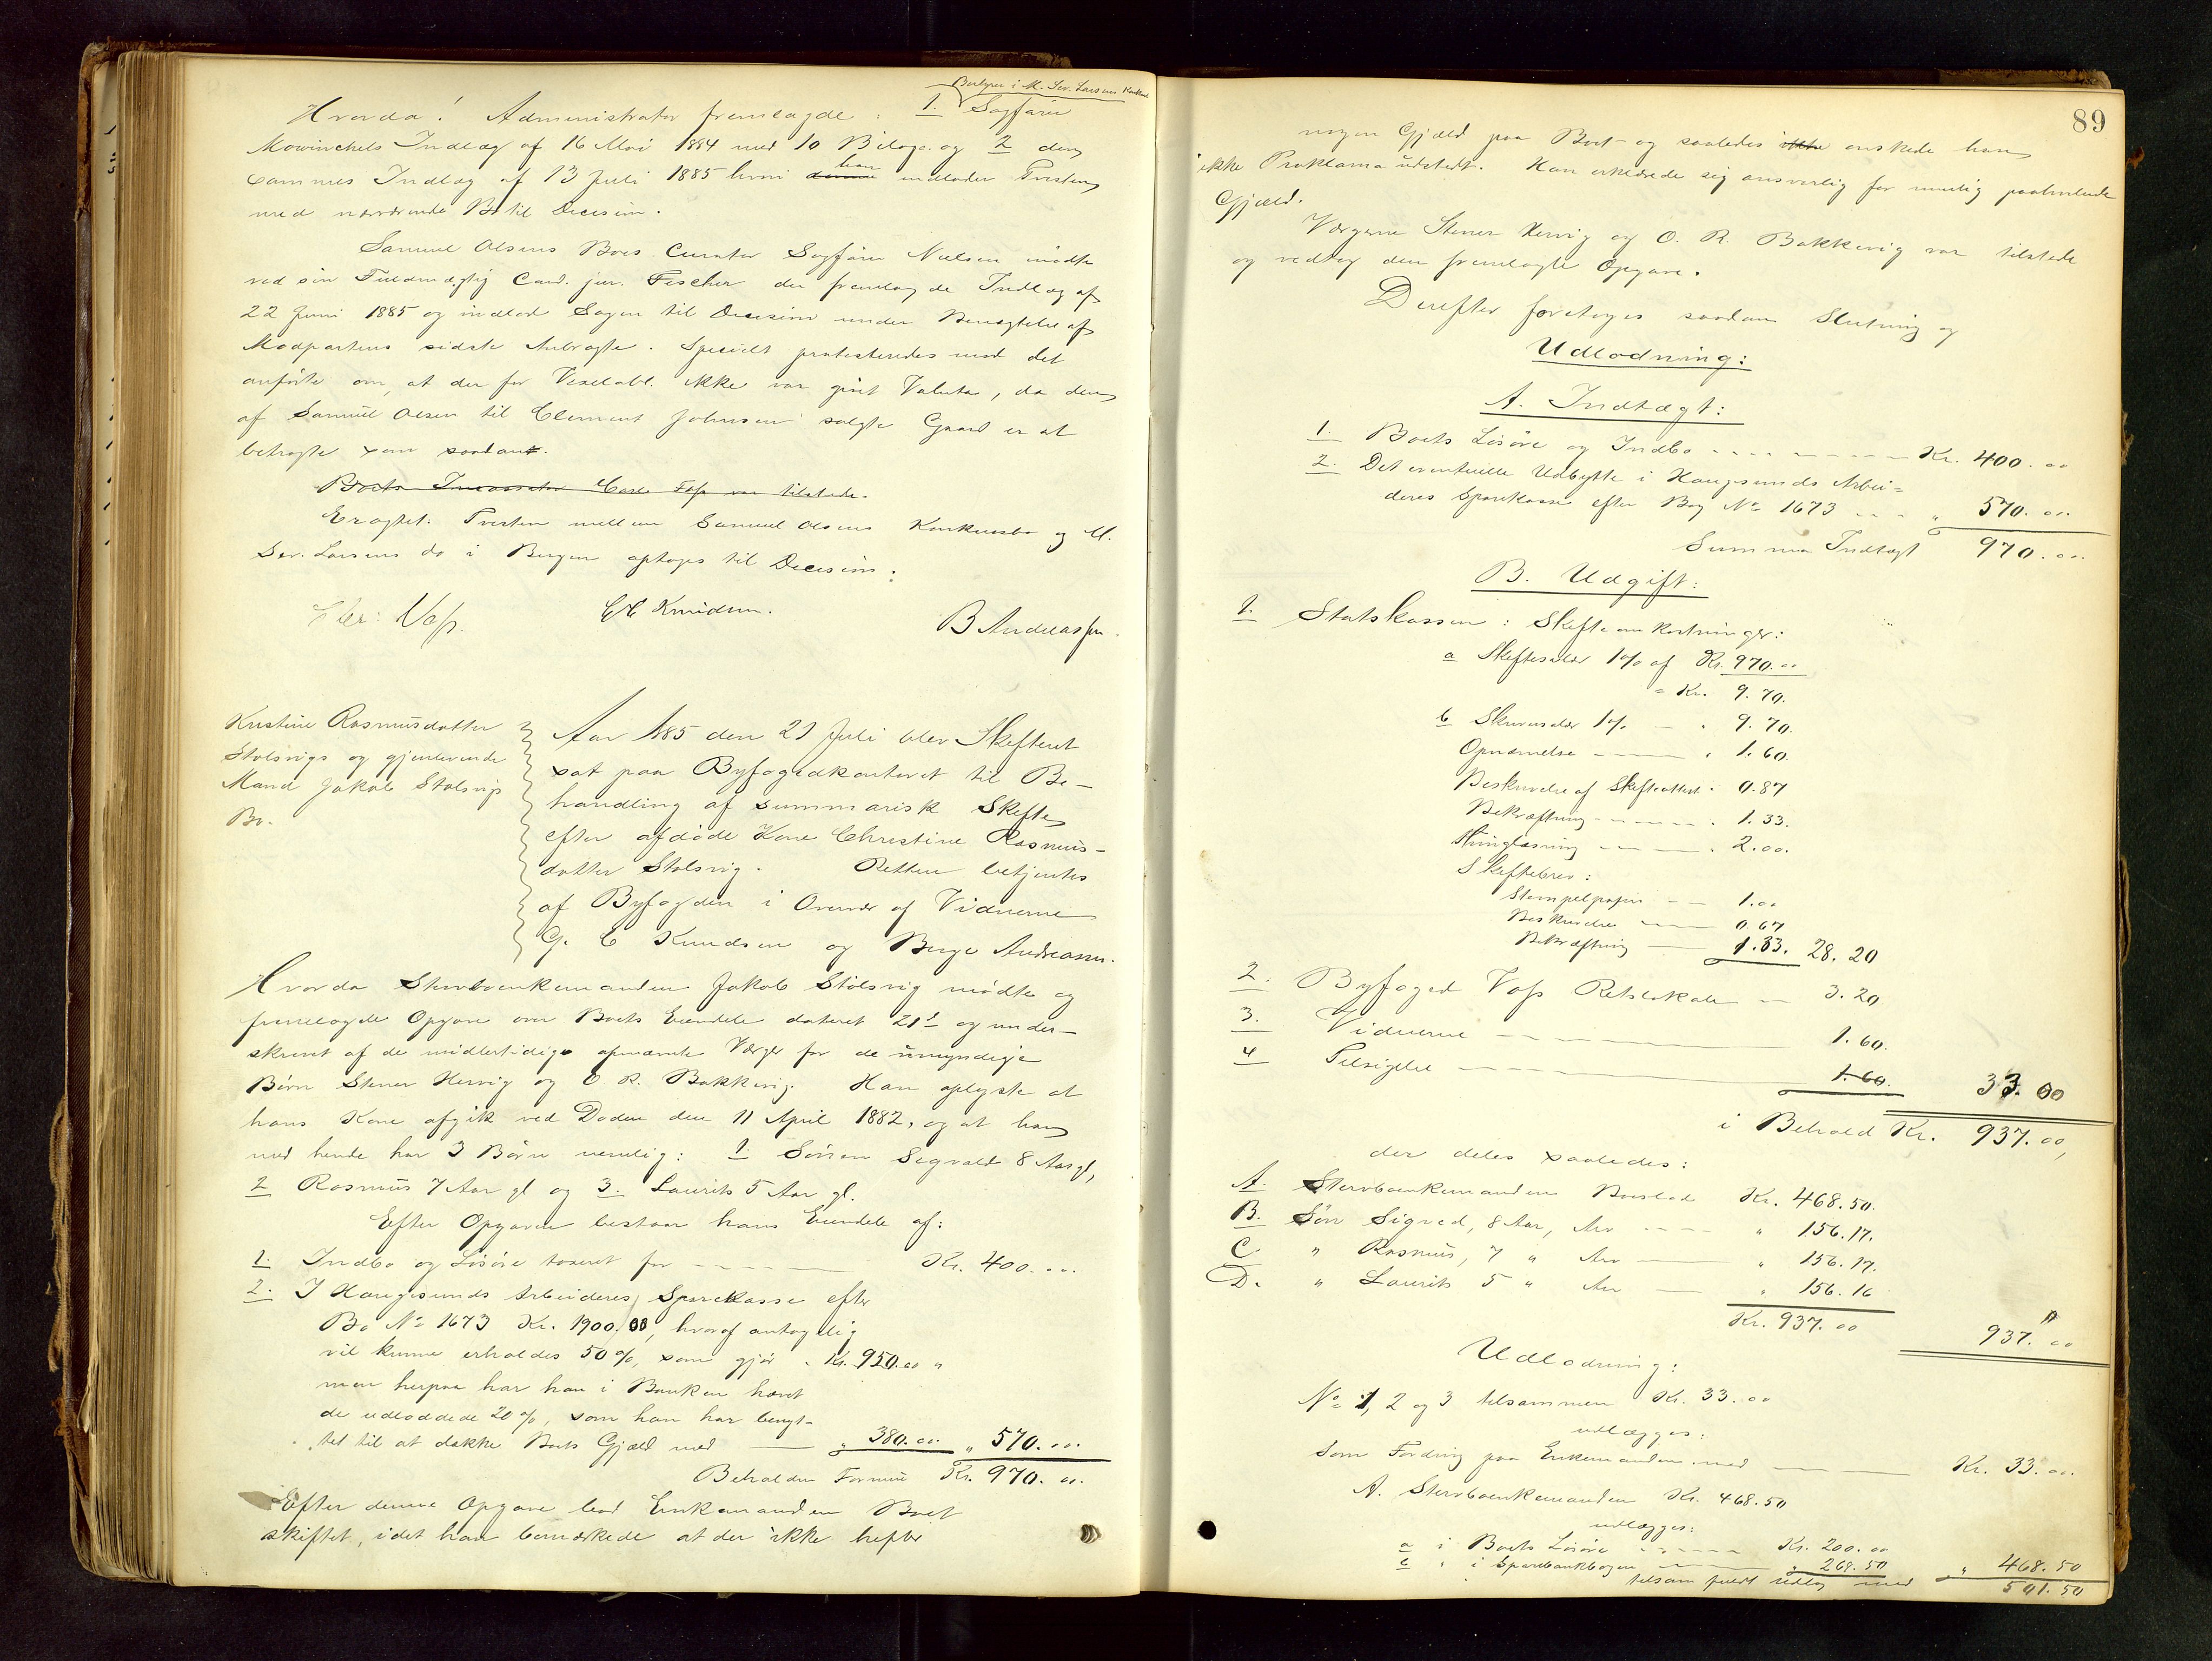 i M. Sev. Larsens
Hvorda! Administrator fremlagde: 1. Sagfører
Mowinckels Indlæg af 16 Mai 1884 med 10 Bilage og 2 den
sammes Indlæg af 13 Juli 1885 hvori denne han indlader Tvisten
med nærværende Bo til Decision.
Samuel Olsens Boes Curator Sagfører Nielsen mødte
ved sin Fuldmægtig Cand. jur. Fischer der fremlagde Indlæg af
22 Juni 1885 og indlod Sagen til Decision under Benægtelse af
Modpartens sidste Anbragte. Specielt protesteredes mod det
anførte om, at der for Vexelobl. ikke var givet Valuta, da den
af Samuel Olsen til Clement Johnsen solgte Gaard er at
betragte som saadant.
Boets Incassator Carl Foss var tilstede.
Eragtet: Tvisten mellem Samuel Olsens Konkursbo og M.
Sev. Larsens do i Bergen optages til Decision.
Voss. Knudsen. B Andreassen.
Kristine Rasmusdatter
Stolsvigs og gjenlevende
Mand Jakob Stolsvigs
Bo.
Aar 1885 den 21 Juli blev Skifteret
sat paa Byfogedkontoret til Be-
handling af summarisk Skifte
efter afdøde Kone Christine Rasmus-
datter Stolsvig. Retten betjentes
af Byfogden i Overvær af Vidnerne
G. C Knudsen og Berge Andreassen.
Hvorda Stervboenkemanden Jakob Stolsvig mødte og
fremlagde Opgave over Boets Eiendele dateret 21 og under-
skrevet af de midlertidige opnævnte Værger for de umyndige
Børn Stener Hervig og O. R. Bakkevig. Han oplyste at
hans Kone afgik ved Døden den 11 April 1882, og at han
med hende har 3 Børn nemlig: 1. Søren Sigvald 8 Aar gl,
2 Rasmus 7 Aar gl og 3. Laurits 5 Aar gl.
Efter Opgaven bestaar hans Eiendele af:
1. Indbo og Løsøre taxeret for Kr. 400.00.
2. I Haugesunds Arbeideres Sparekasse efter
Bo No 1673 Kr. 1900.00, hvoraf antagelig
vil kunne erholdes 50%, som gjør Kr. 950.00 "
men herpaa har han i Banken hævet
de udloddede 20%, som han har benyt-
tet til at dække Boets Gjæld med " 380.00 " 570.00.
Beholden Formue Kr. 970.00.
Efter denne Opgave lod Enkemanden Boet
skiftet, idet han bemærkede at der ikke hefter
89
nogen Gjæld paa Boet og saaledes ikke ønskede han
ikke Proklama udstedt. Han erklærede sig ansvarlig for mulig paahvilende
Gjæld.
Værgerne Stener Hervig og O. R. Bakkevig var tilstede
og vedtog den fremlagte Opgave.
Derefter foretoges saadan Slutning og
Udlodning:
A. Indtægt:
1. Boets Løsøre og Indbo Kr. 400.00
2. Det eventuelle Udbytte i Haugesunds Arbei-
deres Sparekasse efter Bog No 1673 " 570.00.
Summa Indtægt 970.00.
B. Udgift:
1. Statskassen: Skifteomkostninger:
a Skiftesalær 1% af Kr. 970.00
= Kr. 9.70.
b Skriversalær 1% " 9.70.
Opnævnelse " 1.60.
Beskrivelse af Skifteattest " 0.87
Bekræftning " 1.33.
Thinglæsning " 2.00.
Skiftebrev:
Stempelpapir 1.00
Beskrivelse 0.67
Bekræftning 1.33. 28.20
2. Byfoged Voss Retslokale 3.20
3. Vidnerne 1.60.
4 Tilsigelse 1.60. 33.00
i Behold Kr. 937.00,
der deles saaledes:
A. Stervboenkemandens Boeslod Kr. 468.50.
B. Søn Sigvad, 8 Aar, Arv " 156.17.
C. " Rasmus, 7 " Arv " 156.17.
D. " Laurits 5 " Arv " 156.16
Kr. 937.00 937.00
Udlodning:
No 1, 2 og 3 tilsammen Kr. 33.00
udlægges:
Som Fordring paa Enkemanden med Kr. 33.00.
A. Stervboenkemanden Kr. 468.50
udlægges:
a i Boets Løsøre Kr. 200.00
c " i Sparebankbogen " 268.50 " 468.50
tilsam fuldt Udlæg med 501.50